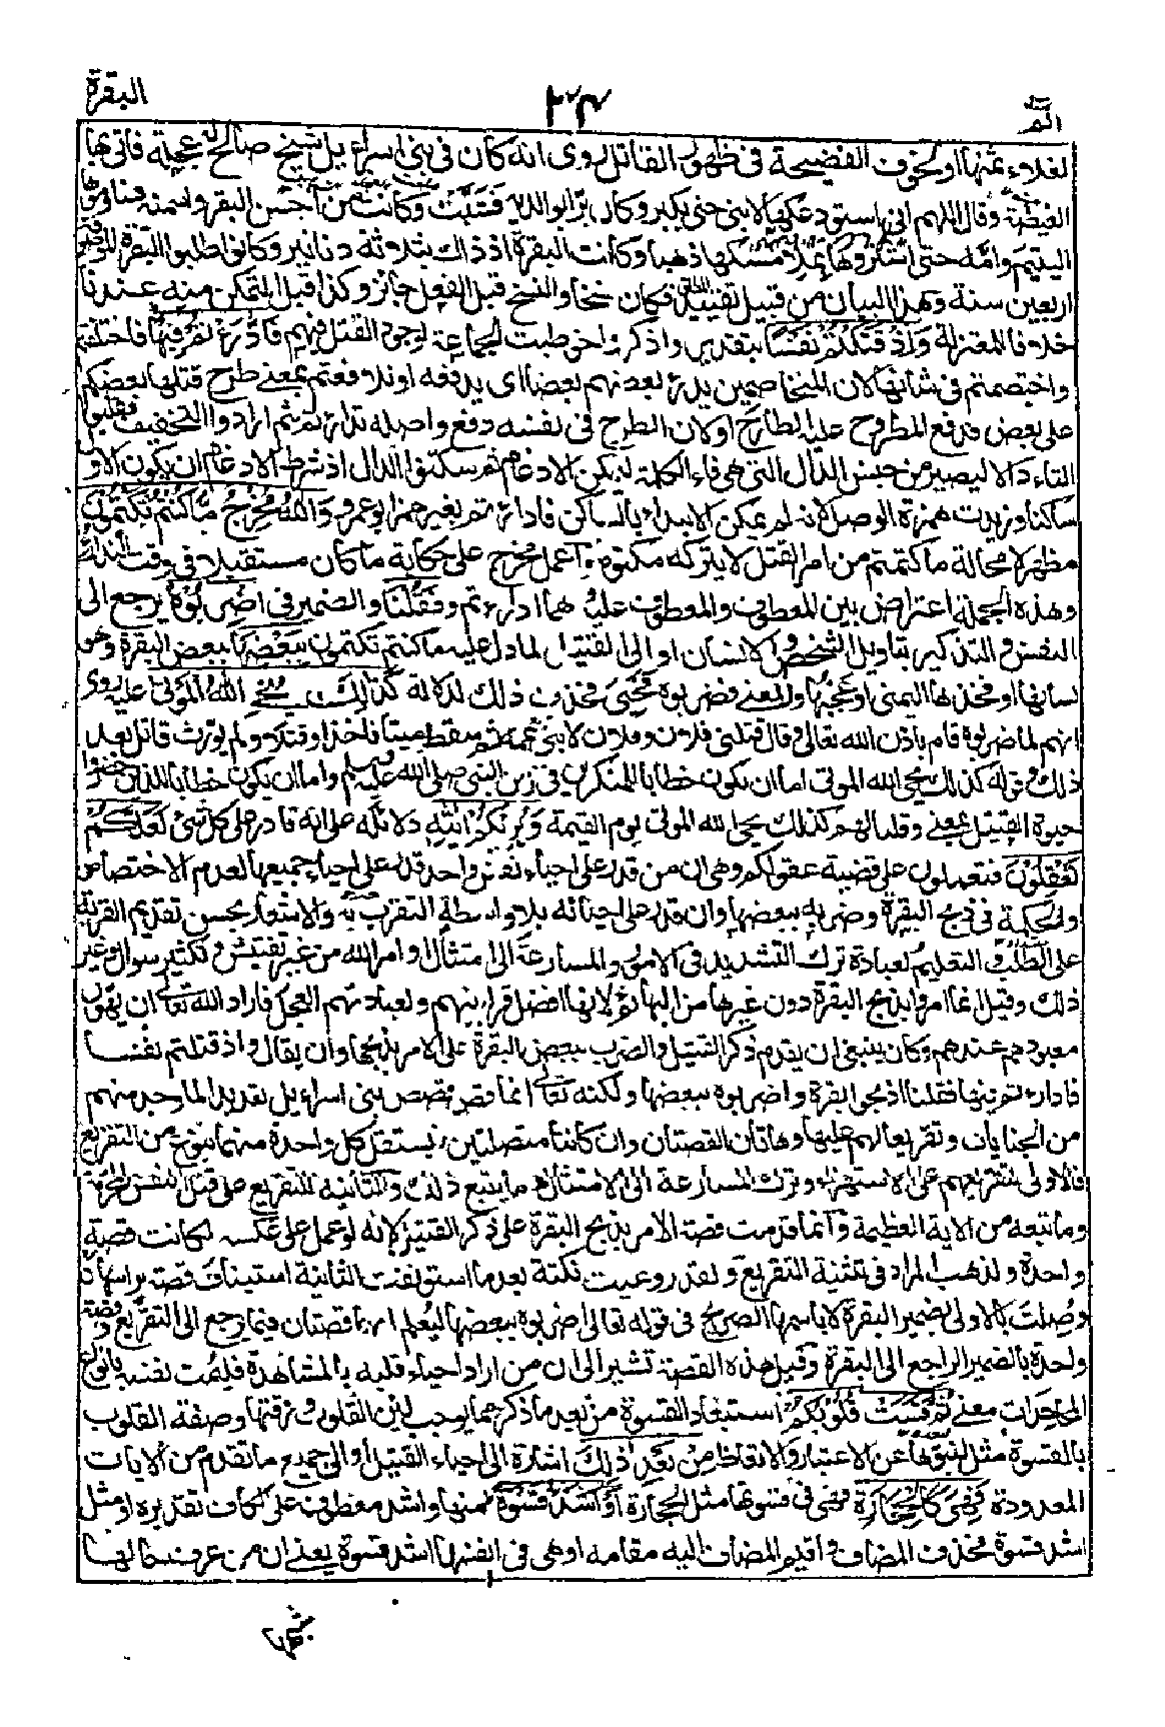 البقرة
٢٣
الم
لغلاء ثمنها او لخوف الفضيحة فى ظهور القاتل روى انه كان فى بنى اسراءيل شيخ صالح له عجلة فاتى بها
الغيضة وقال اللهم انى استودعكها لابنى حتى يكبر وكان برا بوالديه فشبت وكانت من احسن البقر واسمنه فساوموها
اليتيم وامه حتى اشتروها بملأ مسكها ذهبا وكانت البقرة اذ ذاك بثلاثة دنانير وكانوا طلبوا البقرة
اربعين سنة وهذا البيان من قبيل تقييد المطلق فكان نسخا والنسخ قبل الفعل جائز وكذا قبل التمكن منه عندنا
خلافا للمعتزلة وَاِذْ قَتَلْتُمْ نَفْسًا بتقدير واذكروا خوطبت الجماعة لوجود القتل فيهم فَادّٰرَءْتُمْ فِيْهَا فاختلفتم
واختصمتم فى شانها لان المتخاصمين يدرء بعضهم بعضا اى يدفعه او تدافعتم بمعنى طرح قتلها بعضكم
على بعض فدفع المطروح عليه الطارح او لان الطرح فى نفسه دفع واصله تدارءتم ثم ارادوا التخفيف فقلبوا
التاء دالا ليصير من جنس الدال التى هى فاء الكلمة ليمكن الادغام ثم سكنوا الدال اذ شرط الادغام ان يكون الاول
ساكنا وزيدت همزة الوصل لانه لم يمكن الابتداء بالساكن فادارتم بغير همز ابو عمرو وَاللهُ مُخْرِجٌ مَّا كُنْتُمْ تَكْتُمُوْنَ
مظهر لا محالة ما كتمتم من امر القتل لا يتركه مكتوما واعمل مخرج على حكاية ما كان مستقبلا فى وقت التدارء
وهذه الجملة اعتراض بين المعطوف والمعطوف عليه وهما ادارءتم و فَقُلْنَا والضمير فى اضْرِبُوْهُ يرجع الى
النفس والتذكير بتاويل الشخص والانسان او الى القتيل لما دل عليه ما كنتم تكتمون بِبَعْضِهَا ببعض البقرة وهو
لسانها او فخذها اليمنى او عجبها والمعنى فضربوه فحيى فحذف ذلك لدلالة كَذٰلِكَ يُحْيِ اللهُ الْمَوْتٰى عليه روى
انهم لما ضربوه قام باذن الله تعالى وقال قتلنى فلان وفلان لابنى عمه ثم سقط ميتا فاخذا وقتلا ولم يورث قاتل بعد
ذلك وقوله كذلك يحى الله الموتى اما ان يكون خطابا للمنكرين فى زمن النبى صلى الله عليه وسلم واما ان يكون خطابا للذين حضروا
حيوة القتيل بمعنى وقلنا لهم كذلك يحى الله الموتى يوم القيمة وَيُرِيْكُمْ اٰيٰتِهٖ دلائله على انه قادر على كل شئ لَعَلَّكُمْ
تَعْقِلُوْنَ فتعملون على قضية عقولكم وهى ان من قدر على احياء نفس واحدة قدر على احياء جميعها لعدم الاختصاص
والحكمة فى ذبح البقرة وضربه ببعضها وان قدر على احيائه بلا واسطة التقرب به والاشعار بحسن تقديم القربة
على الطلب والتعليم لعباده ترك التشديد فى الامور والمسارعة الى امتثال اوامر الله من غير تفتيش وتكثير سوال وغير
ذلك وقيل انما امروا بذبح البقرة دون غيرها من البهائم لانها افضل قرابينهم ولعبادتهم العجل فاراد الله تعالى ان يهون
معبودهم عندهم وكان ينبغى ان يقدم ذكر القتيل والضرب ببعض البقرة على الامر بذبحها وان يقال واذ قتلتم نفسا
فادارءتم فيها فقلنا اذبحوا البقرة واضربوه ببعضها ولكنه تعالى انما قص قصص بنى اسراءيل تعديدا لما وجد منهم
من الجنايات وتقريعا لهم عليها وهاتان القصتان وان كانتا متصلتين فتستقل كل واحدة منهما بنوع من التقريع
فالاولى لتقريعهم على الاستهزاء وترك المسارعة الى الامتثال وما يتبع ذلك والثانية للتقريع على قتل النفس المحرمة
وما تبعه من الاية العظيمة وانما قدمت قصة الامر بذبح البقرة على ذكر القتيل لانه لو عمل على عكسه لكانت قصة
واحدة ولذهب المراد فى تثنية التقريع ولقد روعيت نكتة بعد ما استونفت الثانية استيناف قصة براسها ان
وصلت بالاولى بضمير البقرة لا باسمها الصريح فى قوله تعالى اضربوه ببعضها ليعلم انهما قصتان فيما يرجع الى التقريع وقصة
واحدة بالضمير الراجع الى البقرة وقيل هذه القصة تشير الى ان من اراد احياء قلبه بالمشاهدة فليمت نفسه بانواع
المجاهدات معنى ثُمَّ قَسَتْ قُلُوْبُكُمْ استبعاد القسوة من بعد ما ذكر مما يوجب لين القلوب ورقتها وصفة القلوب
بالقسوة مثل لنبوها عن الاعتبار والاتعاظ مِنْ بَعْدِ ذٰلِكَ اشارة الى احياء القتيل او الى جميع ما تقدم من الايات
المعدودة فَهِىَ كَالْحِجَارَةِ فهى فى قسوتها مثل الحجارة اَوْ اَشَدُّ قَسْوَةً منها واشد معطوف على الكاف تقديره او مثل
اشد قسوة فحذف المضاف واقيم المضاف اليه مقامه او هى فى انفسها اشد قسوة يعنى ان من عرف حالها